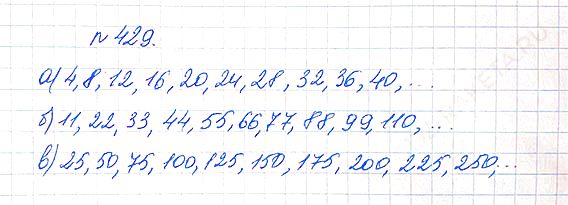 № 429.
а) 4, 8, 12, 16, 20, 24, 28, 32, 36, 40, ...
б) 11, 22, 33, 44, 55, 66, 77, 88, 99, 110, ...
в) 25, 50, 75, 100, 125, 150, 175, 200, 225, 250, ...